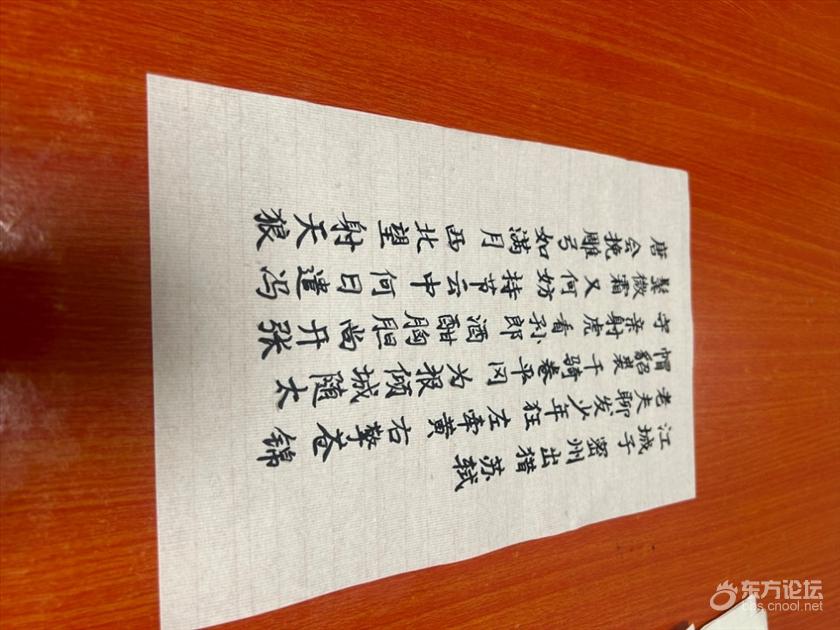 江城子密州出猎苏轼
老夫聊发少年狂左牵黄右擎苍锦
帽貂裘千骑卷平冈为报倾城随太
守亲射虎看孙郎酒酣胸胆尚开张
鬓微霜又何妨持节云中何日遣冯
唐会挽雕弓如满月西北望射天狼
东方论坛
bbs.cnool.net